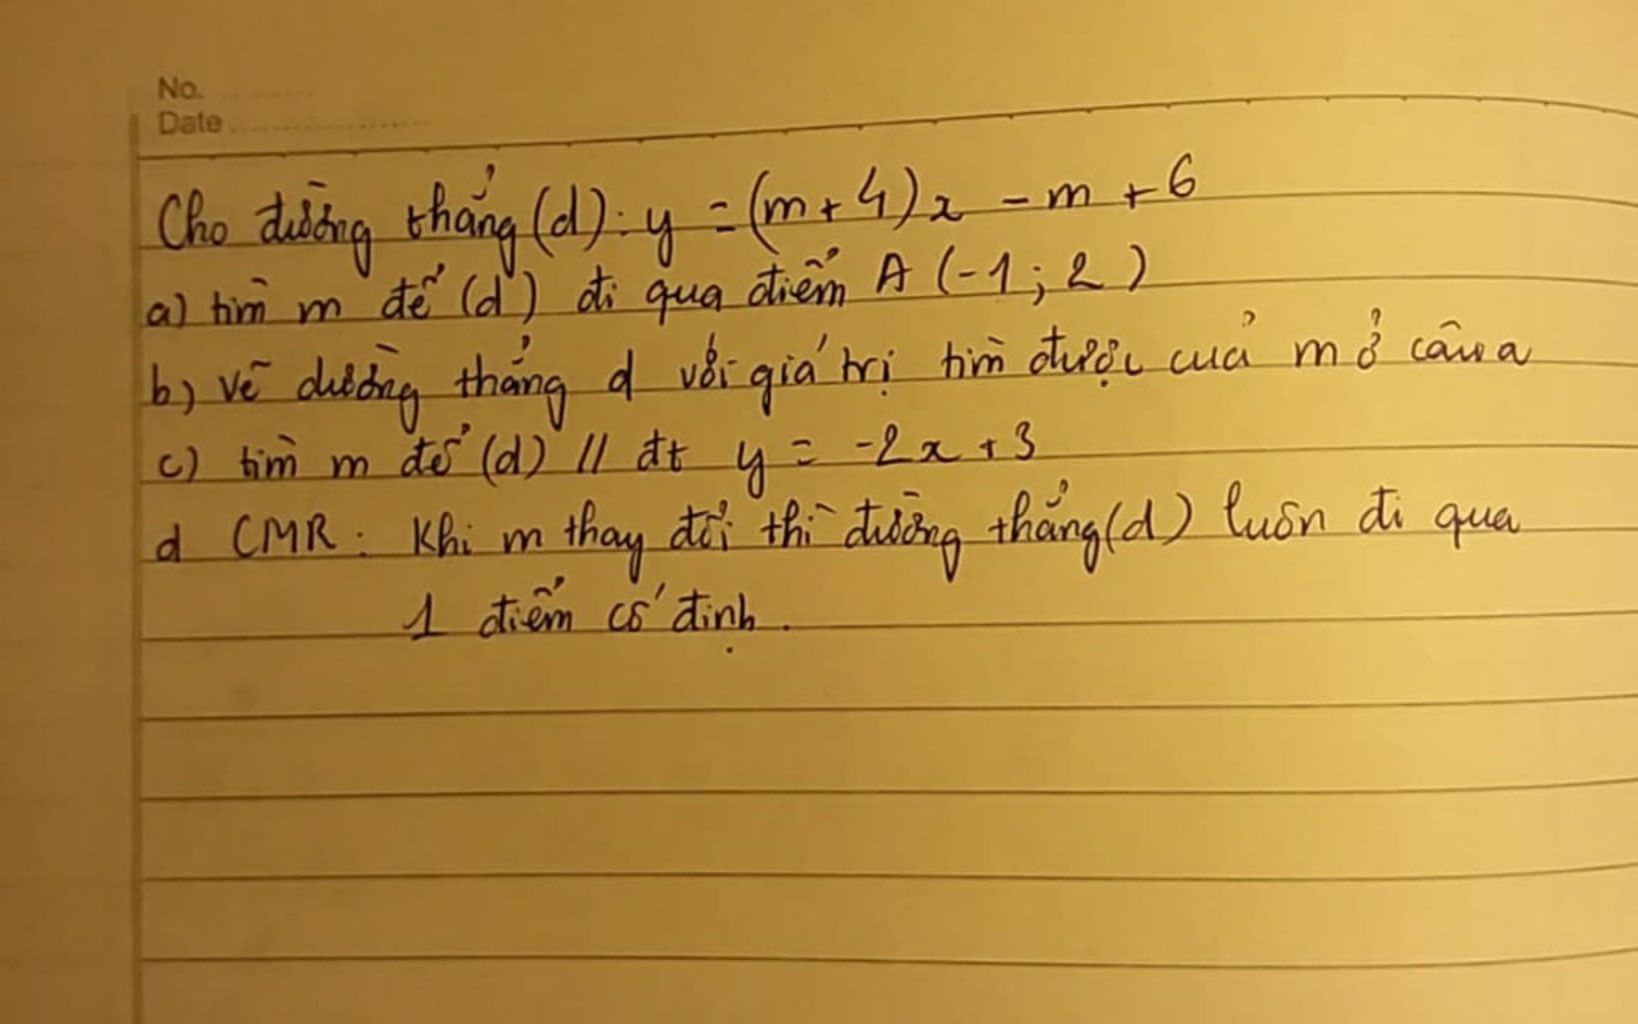 No.
Date
Cho đường thẳng (d): y = (m+4)x - m + 6
a) tìm m để (d) đi qua điểm A (-1; 2)
b) vẽ đường thẳng d với giá trị tìm được của m ở câu a
c) tìm m để (d) // đt y = -2x + 3
d CMR: Khi m thay đổi thì đường thẳng (d) luôn đi qua
1 điểm cố định.